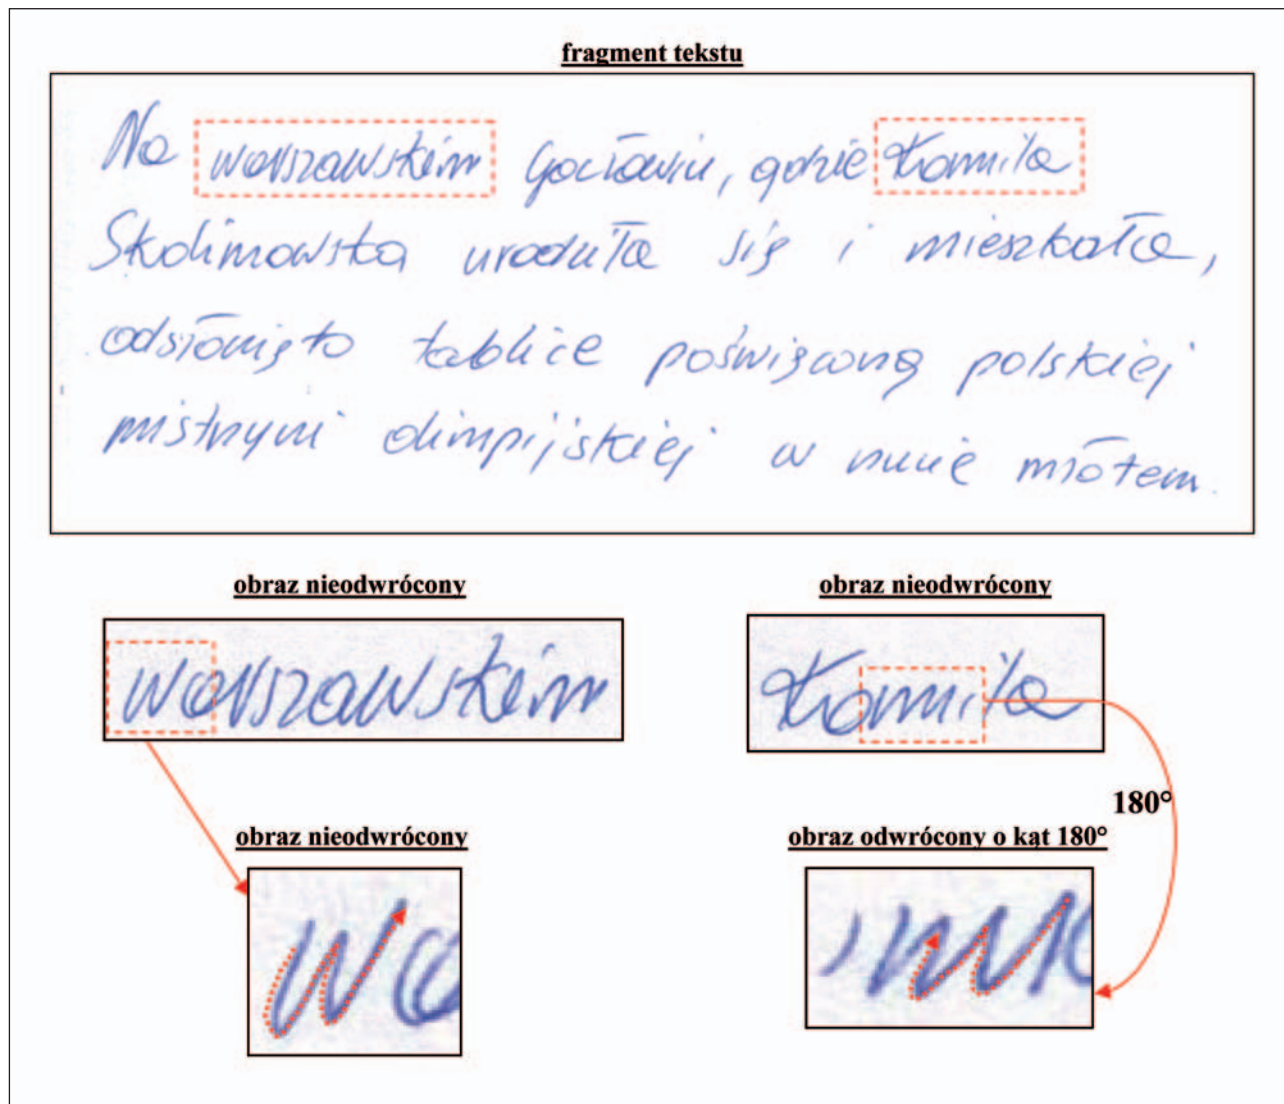 fragment tekstu
Na warszawskim Gocławiu, gdzie Kamila
Skolimowska urodziła się i mieszkała,
odsłonięto tablice poświęconą polskiej
mistrzyni olimpijskiej w rzucie młotem.
obraz nieodwrócony
obraz nieodwrócony
warszawskim
Kamila
180°
obraz nieodwrócony
obraz odwrócony o kąt 180°
wa